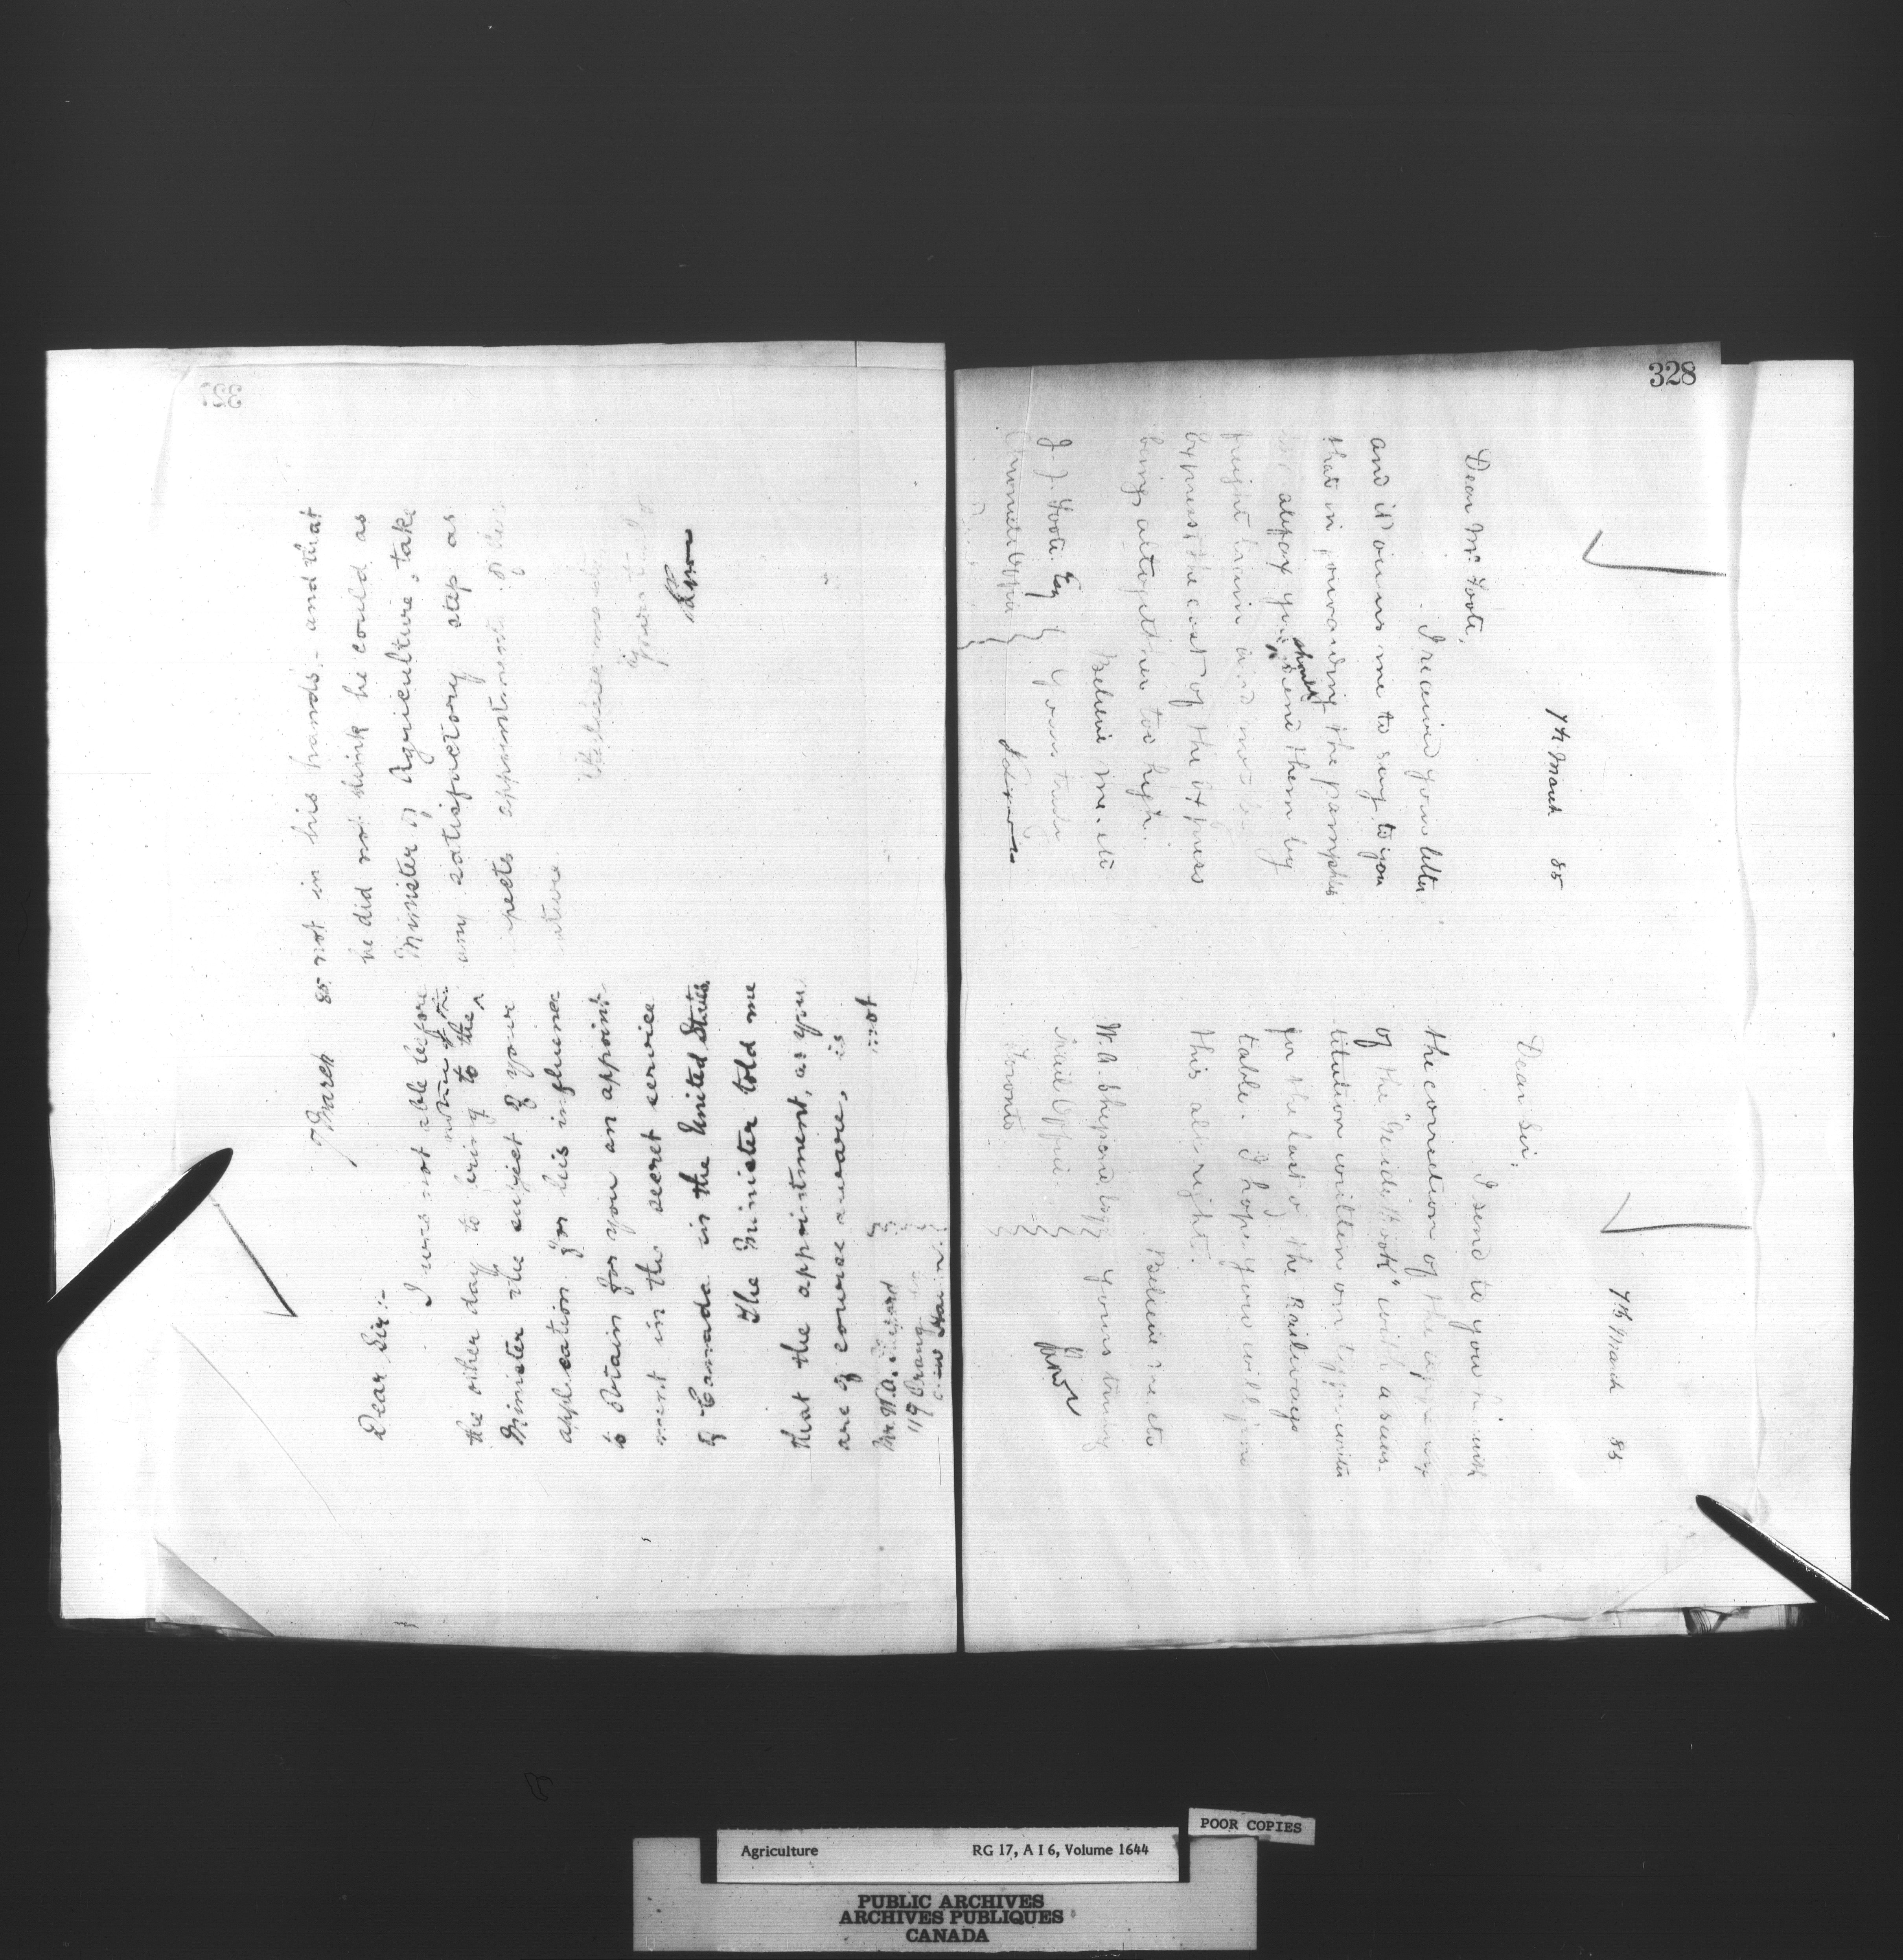 7 March 85
Dear Sir:-
I was not able before
the other day to bring to the notice of the
Minister the subject of your
application for his influence
to obtain for you an appoint-
ment in the secret service
of Canada in the United States.
The Minister told me
that the appointment, as you
are of course aware, is
not
Mr. W. A.
119 Orange
New Haven
not in his hands - and that
he did not think he could as
Minister of Agriculture, take
any satisfactory step as
respects appointment of this
nature.
Believe me etc
Yours truly
Low
328
7th March 85
Dear Mr Foote,
I received your letter
and it occurs me to say to you
that in forwarding the pamphlets
you should send them by
freight train and not by
express, the cost of the express
being altogether too high.
Believe me. etc
J. J. Foote Esq } Yours truly
Chronicle Office }
7th March 85
Dear Sir,
I send to you herewith
the correction of the
of the "Guide Book" with a subs-
titution written on typewriter
for the last of the Railways
table. I hope you will find
this all right.
Believe me etc
W. A. Shepard Esq } Yours truly
Mail Office }
Toronto. }
Low
Agriculture RG 17, A I 6, Volume 1644
POOR COPIES
PUBLIC ARCHIVES
ARCHIVES PUBLIQUES
CANADA